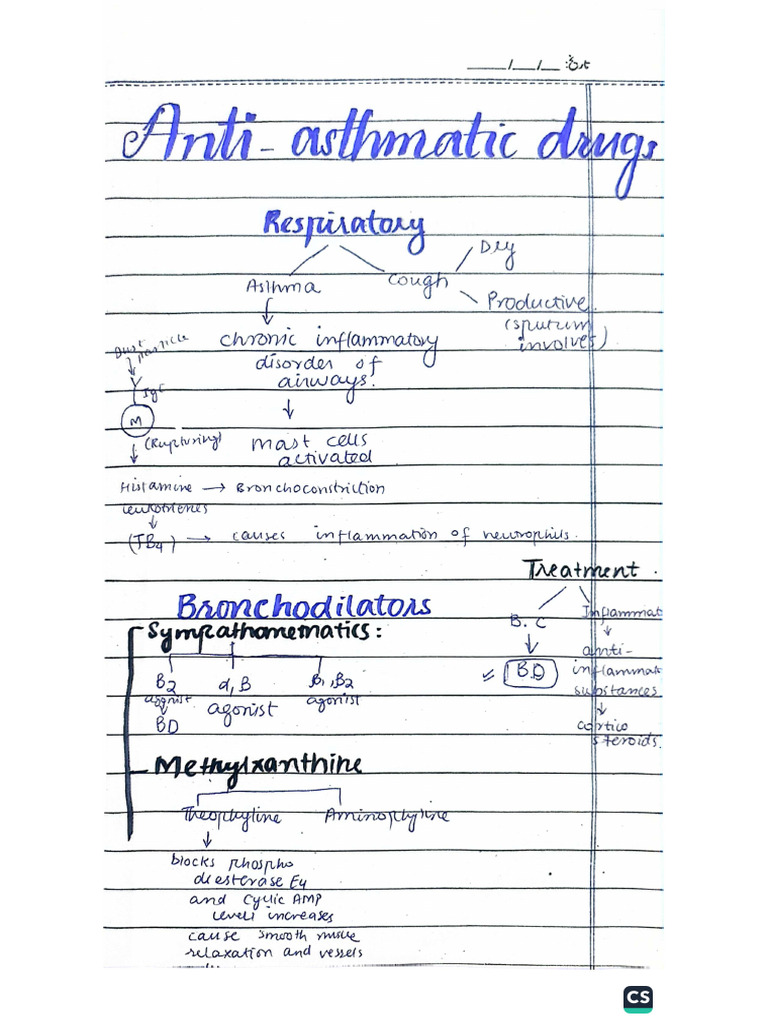 Anti- asthmatic drugs
Respiratory
Asthma
Cough
Dry
Productive
(sputum
involves)
chronic inflammatory
disorder of
airways.
Dust
particle
M
(Rupturing)
mast cells
activated
Histamine → Bronchoconstriction
leukotrienes
causes inflammation of neutrophils.
Treatment
B.C
B.D
Inflammat
anti-
inflammat
substances
cortico
steroids.
Bronchodilators
Sympathomematics:
B2
agonist
BD
α, B
agonist
B1, B2
agonist
Methylxanthine
Theophyline
Aminophyline
blocks phospho
diesterase E4
and cyclic AMP
level increases
cause smooth muscle
relaxation and vessels
CS